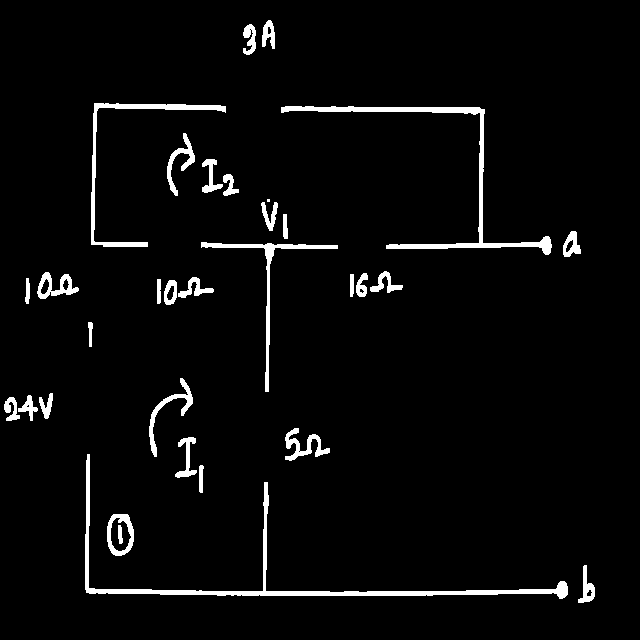 3A
I₂
V₁
a
10Ω
10Ω
16Ω
24V
I₁
5Ω
①
b